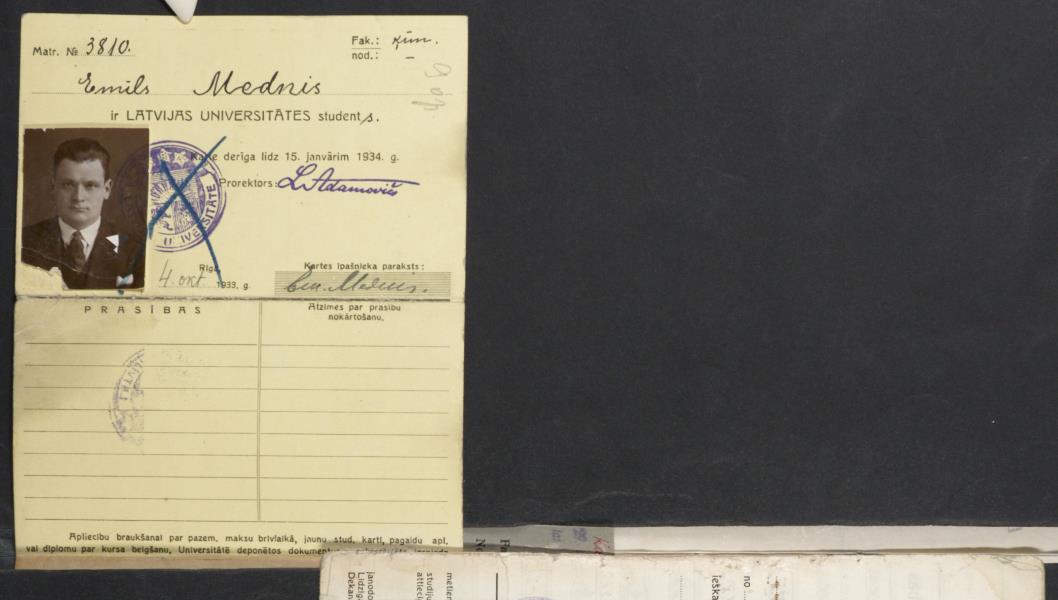 Matr. № 3810.
Fak.: ķīm.
nod.: –
Emīls Mednis
ir LATVIJAS UNIVERSITĀTES students.
derīga līdz 15. janvārim 1934. g.
Prorektors: L. Adamovičs
UNIVERSITĀTE
Rīgā, 4. okt. 1933. g.
Kartes īpašnieka paraksts:
Em. Mednis.
PRASĪBAS
Atzīmes par prasību
nokārtošanu.
Apliecību braukšanai par pazem. maksu brīvlaikā, jaunu stud. karti, pagaidu apl.
vai diplomu par kursa beigšanu, Universitātē deponētos